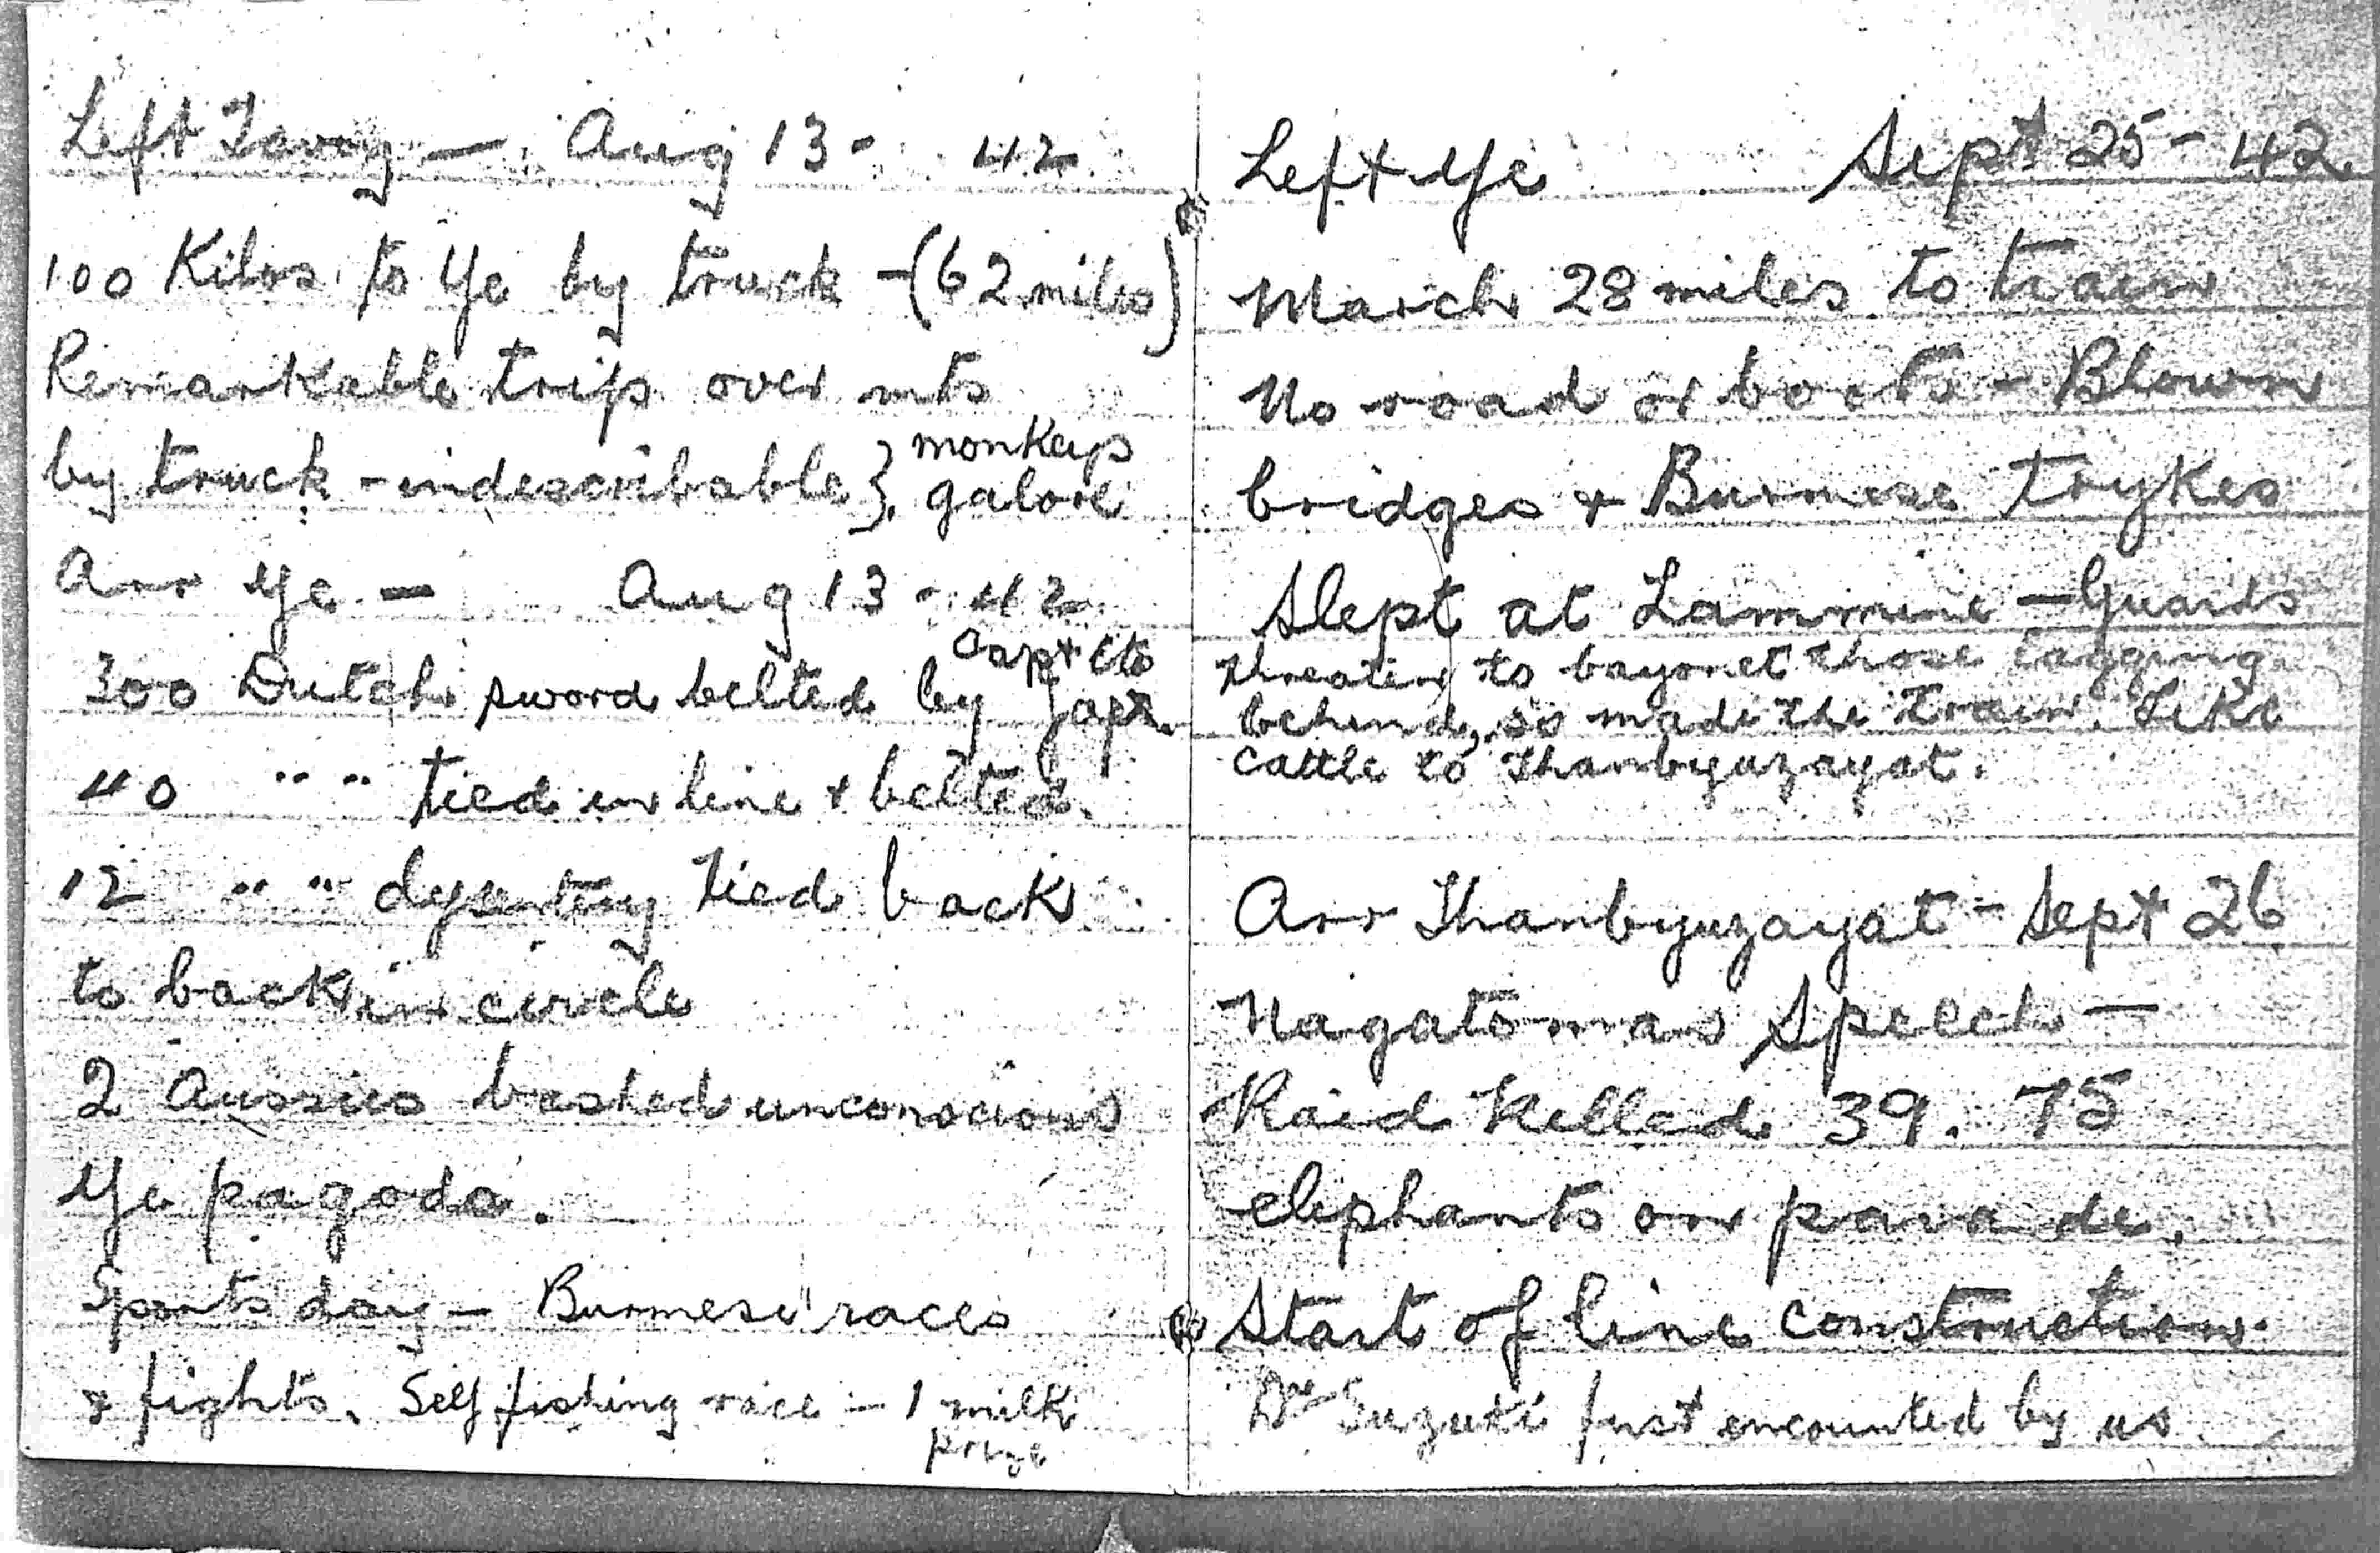 Left Tavoy — Aug 13 - 42
100 Kilos to Ye by truck - (62 miles)
Remarkable trip over mts
by truck - indescribable } monkeys
galore
Arr Ye — Aug 13 - 42
Capt Ito
300 Dutch sword belted by Japs
40 " " tied in line & belted.
12 " " dysentery tied back
to back in circle
2 Aussies bashed unconscious
Ye pagoda.
Sports day — Burmese races
& fights. Self fishing race - 1 milk
prize
Left Ye Sept 25 - 42
March 28 miles to train
No road or boots - Blown
bridges & Burmese trykes
Slept at Lammine — Guards
threating to bayonet those lagging
behind, so made the train. Like
cattle to Thanbyuzayat.
Arr Thanbyuzayat - Sept 26
Nagatoman Speech —
Raid Killed 39. 75
elephants on parade.
Start of line construction.
Dr Suzuki first encounted by us